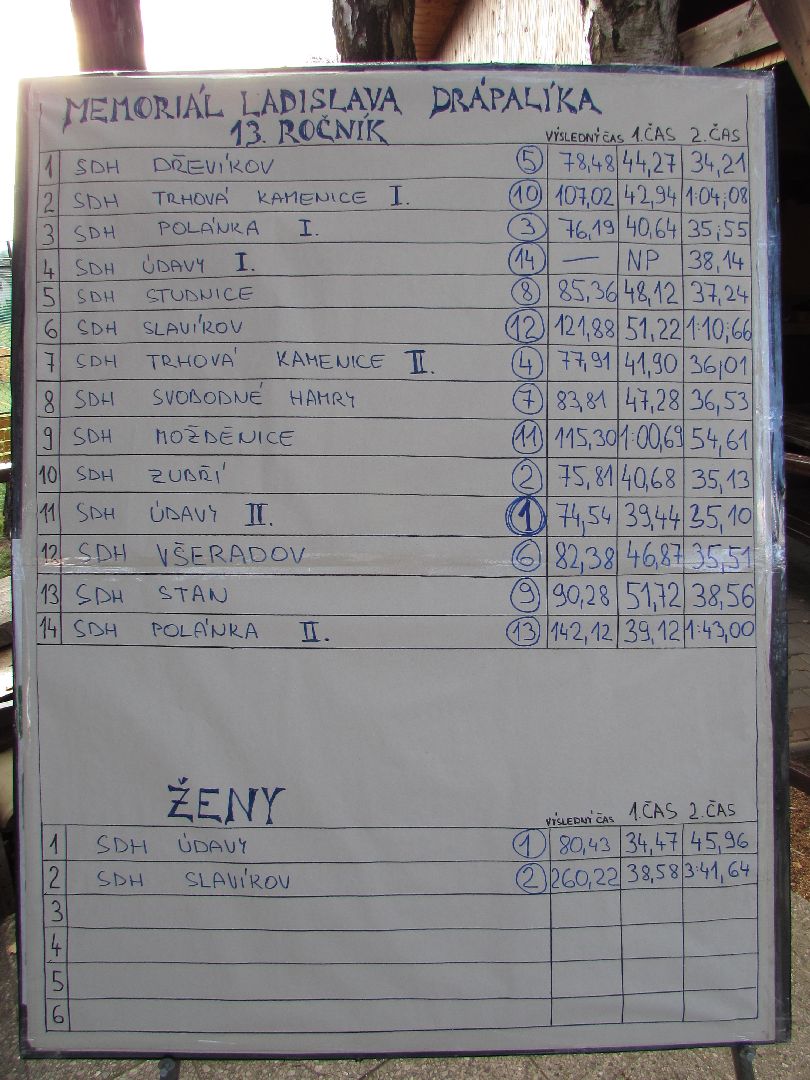 MEMORIÁL LADISLAVA DRÁPALÍKA
13. ROČNÍK
VÝSLEDNÝ ČAS 1.ČAS 2.ČAS
1 SDH DŘEVÍKOV 5 78,48 44,27 34,21
2 SDH TRHOVÁ KAMENICE I. 10 107,02 42,94 1:04;08
3 SDH POLÁNKA I. 3 76,19 40,64 35;55
4 SDH ÚDAVY I. 14 — NP 38,14
5 SDH STUDNICE 8 85,36 48,12 37,24
6 SDH SLAVÍKOV 12 121,88 51,22 1:10;66
7 SDH TRHOVÁ KAMENICE II. 4 77,91 41,90 36;01
8 SDH SVOBODNÉ HAMRY 7 83,81 47,28 36,53
9 SDH MOŽDĚNICE 11 115,30 1:00,69 54,61
10 SDH ZUBŘÍ 2 75,81 40,68 35,13
11 SDH ÚDAVY II. 1 74,54 39,44 35,10
12 SDH VŠERADOV 6 82,38 46,87 35,51
13 SDH STAN 9 90,28 51,72 38,56
14 SDH POLÁNKA II. 13 142,12 39,12 1:43,00
ŽENY
VÝSLEDNÝ ČAS 1.ČAS 2.ČAS
1 SDH ÚDAVY 1 80,43 34,47 45,96
2 SDH SLAVÍKOV 2 260,22 38,58 3:41,64
3
4
5
6